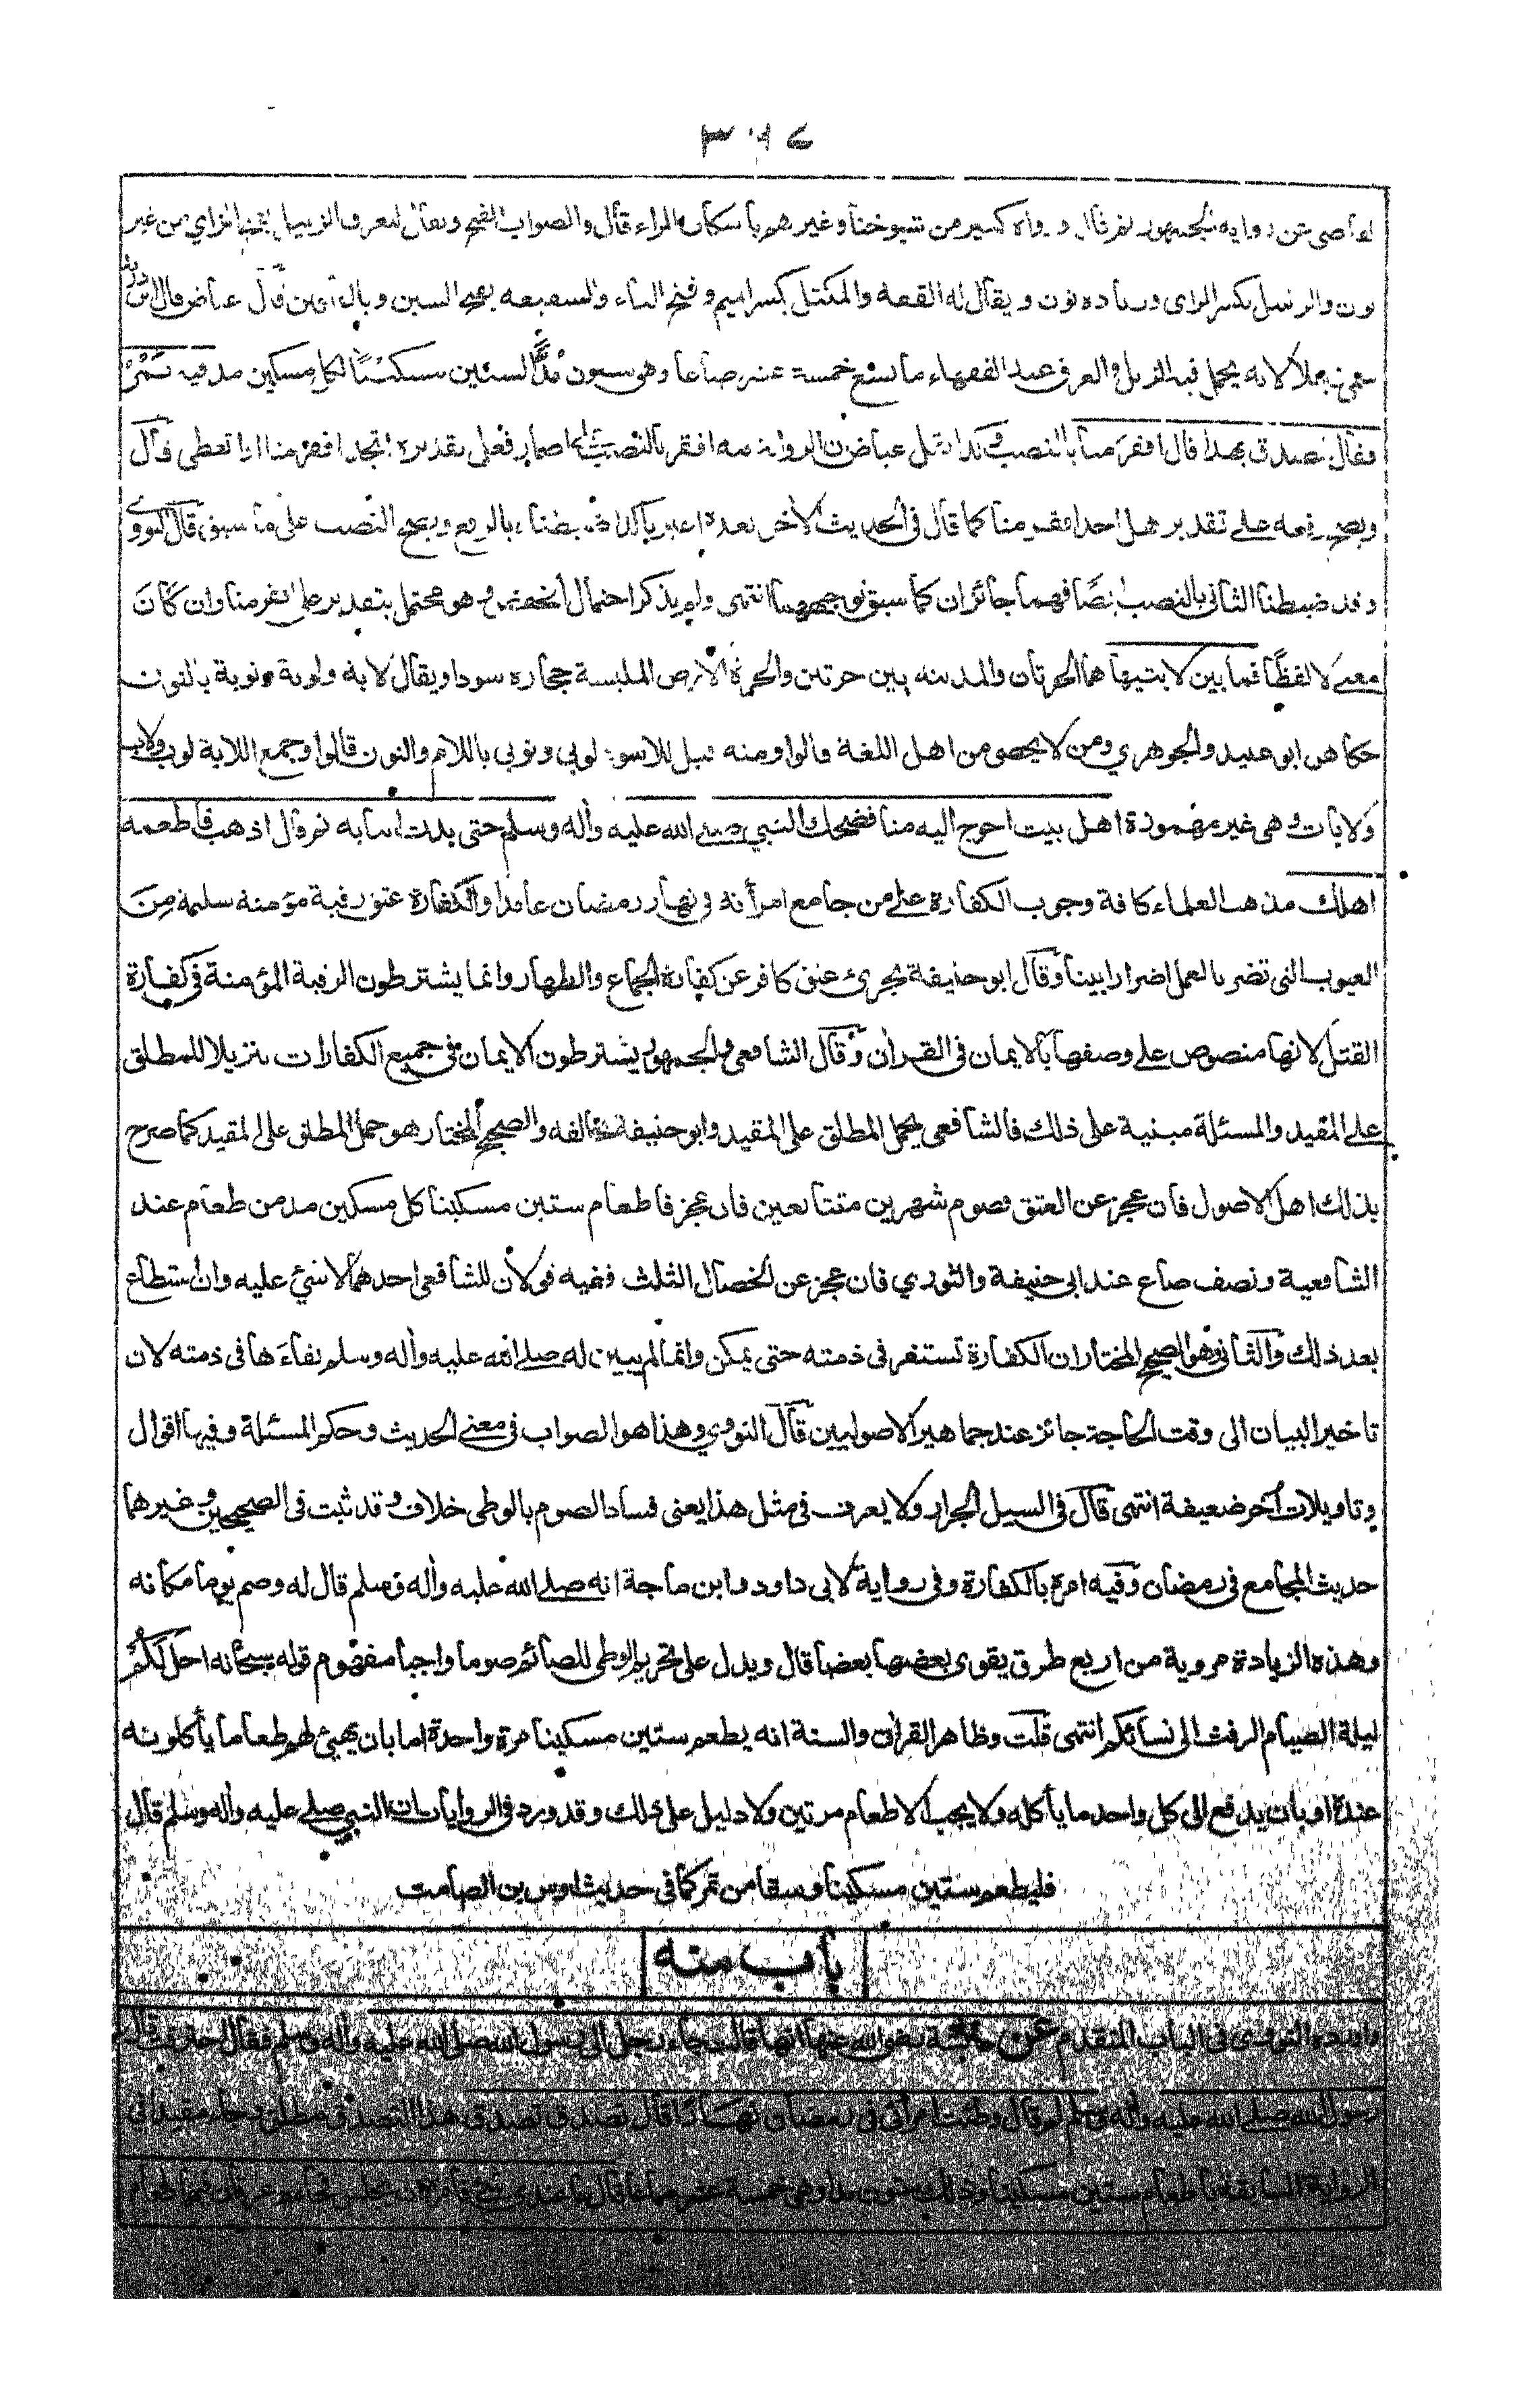 القاضي عن رواية الجمهور ثم قال ورواه كثير من شيوخنا وغيرهم بأسكان الراء قال والصواب الفتح ويقال للعرق الزبيل بفتح الزاي من غير
نون والزنبيل بكسر الزاي وزيادة نون ويقال له القفة والمكتل بكسر الميم وفتح التاء والسفيفة بفتح السين وبالفائين قال عياض قال ابن دريد
سمي زبيلا لانه يحمل فيه الزبل والعرق عند الفقهاء ما يسع خمسة عشر صاعا وهي ستون مُدًّا لستين مسكينًا لكل مسكين مد فيه تَمْرٌ
فقال تصدق بهذا قال افقرَ منا بالنصب وكذا نقل عياض ان الرواية فيه افقر بالنصب على اضمار فعل تقديره اتجد افقر منا او اتعطى قال
ويصح رفعه على تقدير هل احد افقر منا كما قال في الحديث الآخر بعده اغيرنا كذا ضبطناه بالرفع ويصح النصب على ما سبق قال النووي
وقد ضبطنا الثاني بالنصب ايضًا فهما جائزان كما سبق توجيههما انتهى ولم يذكر احتمال الخفض وهو محتمل بتقدير على افقر منا وان كان
معنى لا لفظًا فما بين لابتيها هما الحرتان والمدينه بين حرتين والحرة الارض الملبسة حجاره سودا ويقال لابة ولوبة ونوبة بالنون
حكاهن ابو عبيد والجوهري ومن لا يحصى من اهل اللغة قالوا ومنه قيل للاسود لوبي ونوبي باللام والنون قالوا وجمع اللابة لوب ولاب
ولابات وهى غير مهموزة اهل بيت احوج اليه منا فضحك النبي صلى الله عليه وأله وسلم حتى بدت انيابه ثم قال اذهب فاطعمه
اهلك مذهب العلماء كافة وجوب الكفارة على من جامع امرأته في نهار رمضان عامدا والكفارة عتق رقبة مؤمنة سليمة مِن
العيوب التي تضر بالعمل اضرارا بينا وقال ابو حنيفة يجزئ عتق كافر عن كفارة الجماع والظهار وانما يشترطون الرقبة المؤمنة في كفارة
القتل لانها منصوص على وصفها بالايمان في القرأن وقال الشافعي والجمهور يشترطون الايمان في جميع الكفارات تنزيلا للمطلق
على المقيد والمسئلة مبنية على ذلك فالشافعي يحمل المطلق على المقيد وابو حنيفة يخالفه والصحيح المختار هو حمل المطلق على المقيد كما صرح
بذلك اهل الاصول فان عجز عن العتق فصوم شهرين متتابعين فان عجز فاطعام ستين مسكينا كل مسكين مد من طعام عند
الشافعية ونصف صاع عند ابي حنيفة والثوري فان عجز عن الخصال الثلث ففيه قولان للشافعي احدهما لا شئ عليه وان استطاع
بعد ذلك والثاني وهو الصحيح المختار ان الكفارة تستقر في ذمته حتى يمكن وانما لم يبين له صلى الله عليه وأله وسلم بقاءَها في ذمته لان
تاخير البيان الى وقت الحاجة جائز عند جماهير الاصوليين قال النووي وهذا هو الصواب في معنى الحديث وحكم المسئلة وفيها اقوال
وتاويلات أخر ضعيفة انتهى قال في السيل الجرار ولا يعرف في مثل هذا يعنى فساد الصوم بالوطي خلاف وقد ثبت في الصحيحين وغيرهما
حديث المجامع في رمضان وفيه امره بالكفارة وفي رواية لابي داود وابن ماجة انه صلى الله عليه وأله وسلم قال له وصم يوما مكانه
وهذه الزيادة مروية من اربع طرق يقوى بعضها بعضا قال ويدل على تحريم الوطي للصائم صوما واجبا مفهوم قوله سبحانه احل لَكُمْ
ليلة الصيام الرفث الى نسائكم انتهى قلت وظاهر القرأن والسنة انه يطعم ستين مسكينا مرة واحدة اما بان يهيئ لهم طعاما يأكلونه
عنده او بأن يدفع الى كل واحد ما يأكله ولا يجب الاطعام مرتين ولا دليل على ذلك وقد ورد في الروايات ان النبي صلى عليه وأله وسلم قال
فليطعم ستين مسكينا وسقا من تمر كما في حديث اوس بن الصامت
باب منه
واورده النووي في الباب المتقدم عن عائشة رضي الله عنها انها قالت جاء رجل الى رسول الله صلى الله عليه وأله وسلم فقال احترقت قال
رسول الله صلى الله عليه وأله وسلم لم قال وطئت امرأتي في رمضان نهارًا قال تصدق تصدق هذا التصدق مطلق وجاء مقيدا في
الرواية السابقة باطعام ستين مسكينا وذلك ستون مدا وهي خمسة عشر صاعا قال ما عندي شئ فأمره ان يجلس فجاءه عرقان فيهما طعام